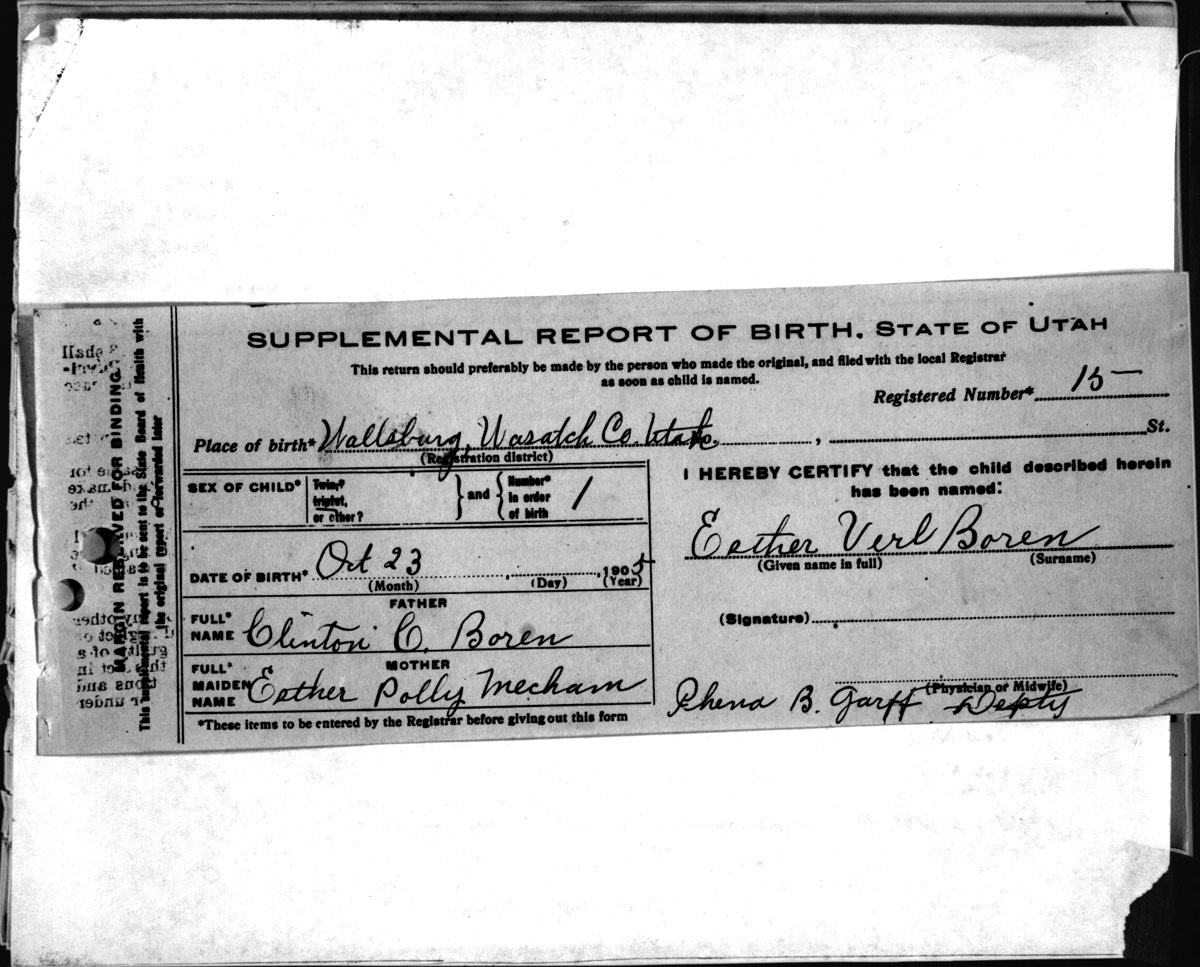 SUPPLEMENTAL REPORT OF BIRTH. STATE OF UTAH
This return should preferably be made by the person who made the original, and filed with the local Registrar
as soon as child is named.
Registered Number* 15—
Place of birth* Wallsburg, Wasatch Co. Utah. , St.
(Registration district)
SEX OF CHILD*
Twin,*
triplet,
or other?
} and {
Number*
in order
of birth
1
DATE OF BIRTH* Oct 23 , 1905
(Month) (Day) (Year)
FATHER
FULL*
NAME Clinton C. Boren
MOTHER
FULL*
MAIDEN
NAME Esther Polly Mecham
*These items to be entered by the Registrar before giving out this form
I HEREBY CERTIFY that the child described herein
has been named:
Esther Verl Boren
(Given name in full) (Surname)
(Signature)
(Physician or Midwife)
Rhena B. Garff Depty
MARGIN RESERVED FOR BINDING.
This supplemental report is to be sent to the State Board of Health with
the original report or forwarded later